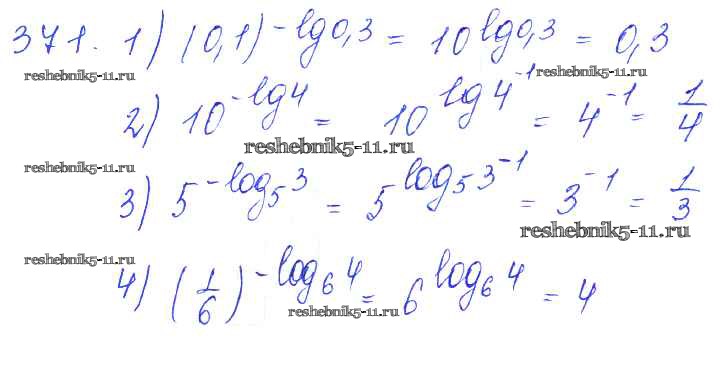 371. 1) (0,1)^{-lg0,3} = 10^{lg0,3} = 0,3
reshebnik5-11.ru reshebnik5-11.ru
2) 10^{-lg4} = 10^{lg4^{-1}} = 4^{-1} = 1/4
reshebnik5-11.ru
reshebnik5-11.ru
3) 5^{-log_5 3} = 5^{log_5 3^{-1}} = 3^{-1} = 1/3
reshebnik5-11.ru
reshebnik5-11.ru
4) (1/6)^{-log_6 4} = 6^{log_6 4} = 4
reshebnik5-11.ru